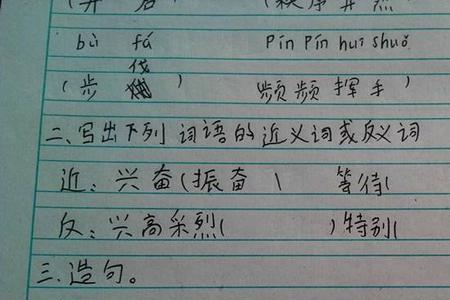 bù fá Pín Pín huī shuǒ
(步伐) 频频挥手
二、写出下列词语的近义词或反义词
近：兴奋(振奋 ) 等待(
反：兴高采烈( )特别(
三.造句。